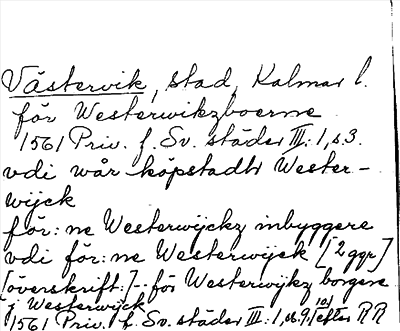 Västervik, stad, Kalmar l.
för Westerwikzboerne
1561 Priv. f. Sv. städer III: 1, s. 3.
vdi wår köpstadh Wester-
wijck
för:ne Westerwijckz inbyggere
vdi för:ne Westerwijck [2 ggr]
[överskrift:] -- för Westerwijkz borgere
j Westerwijck
1561 Priv. f. Sv. städer III: 1, efter RR